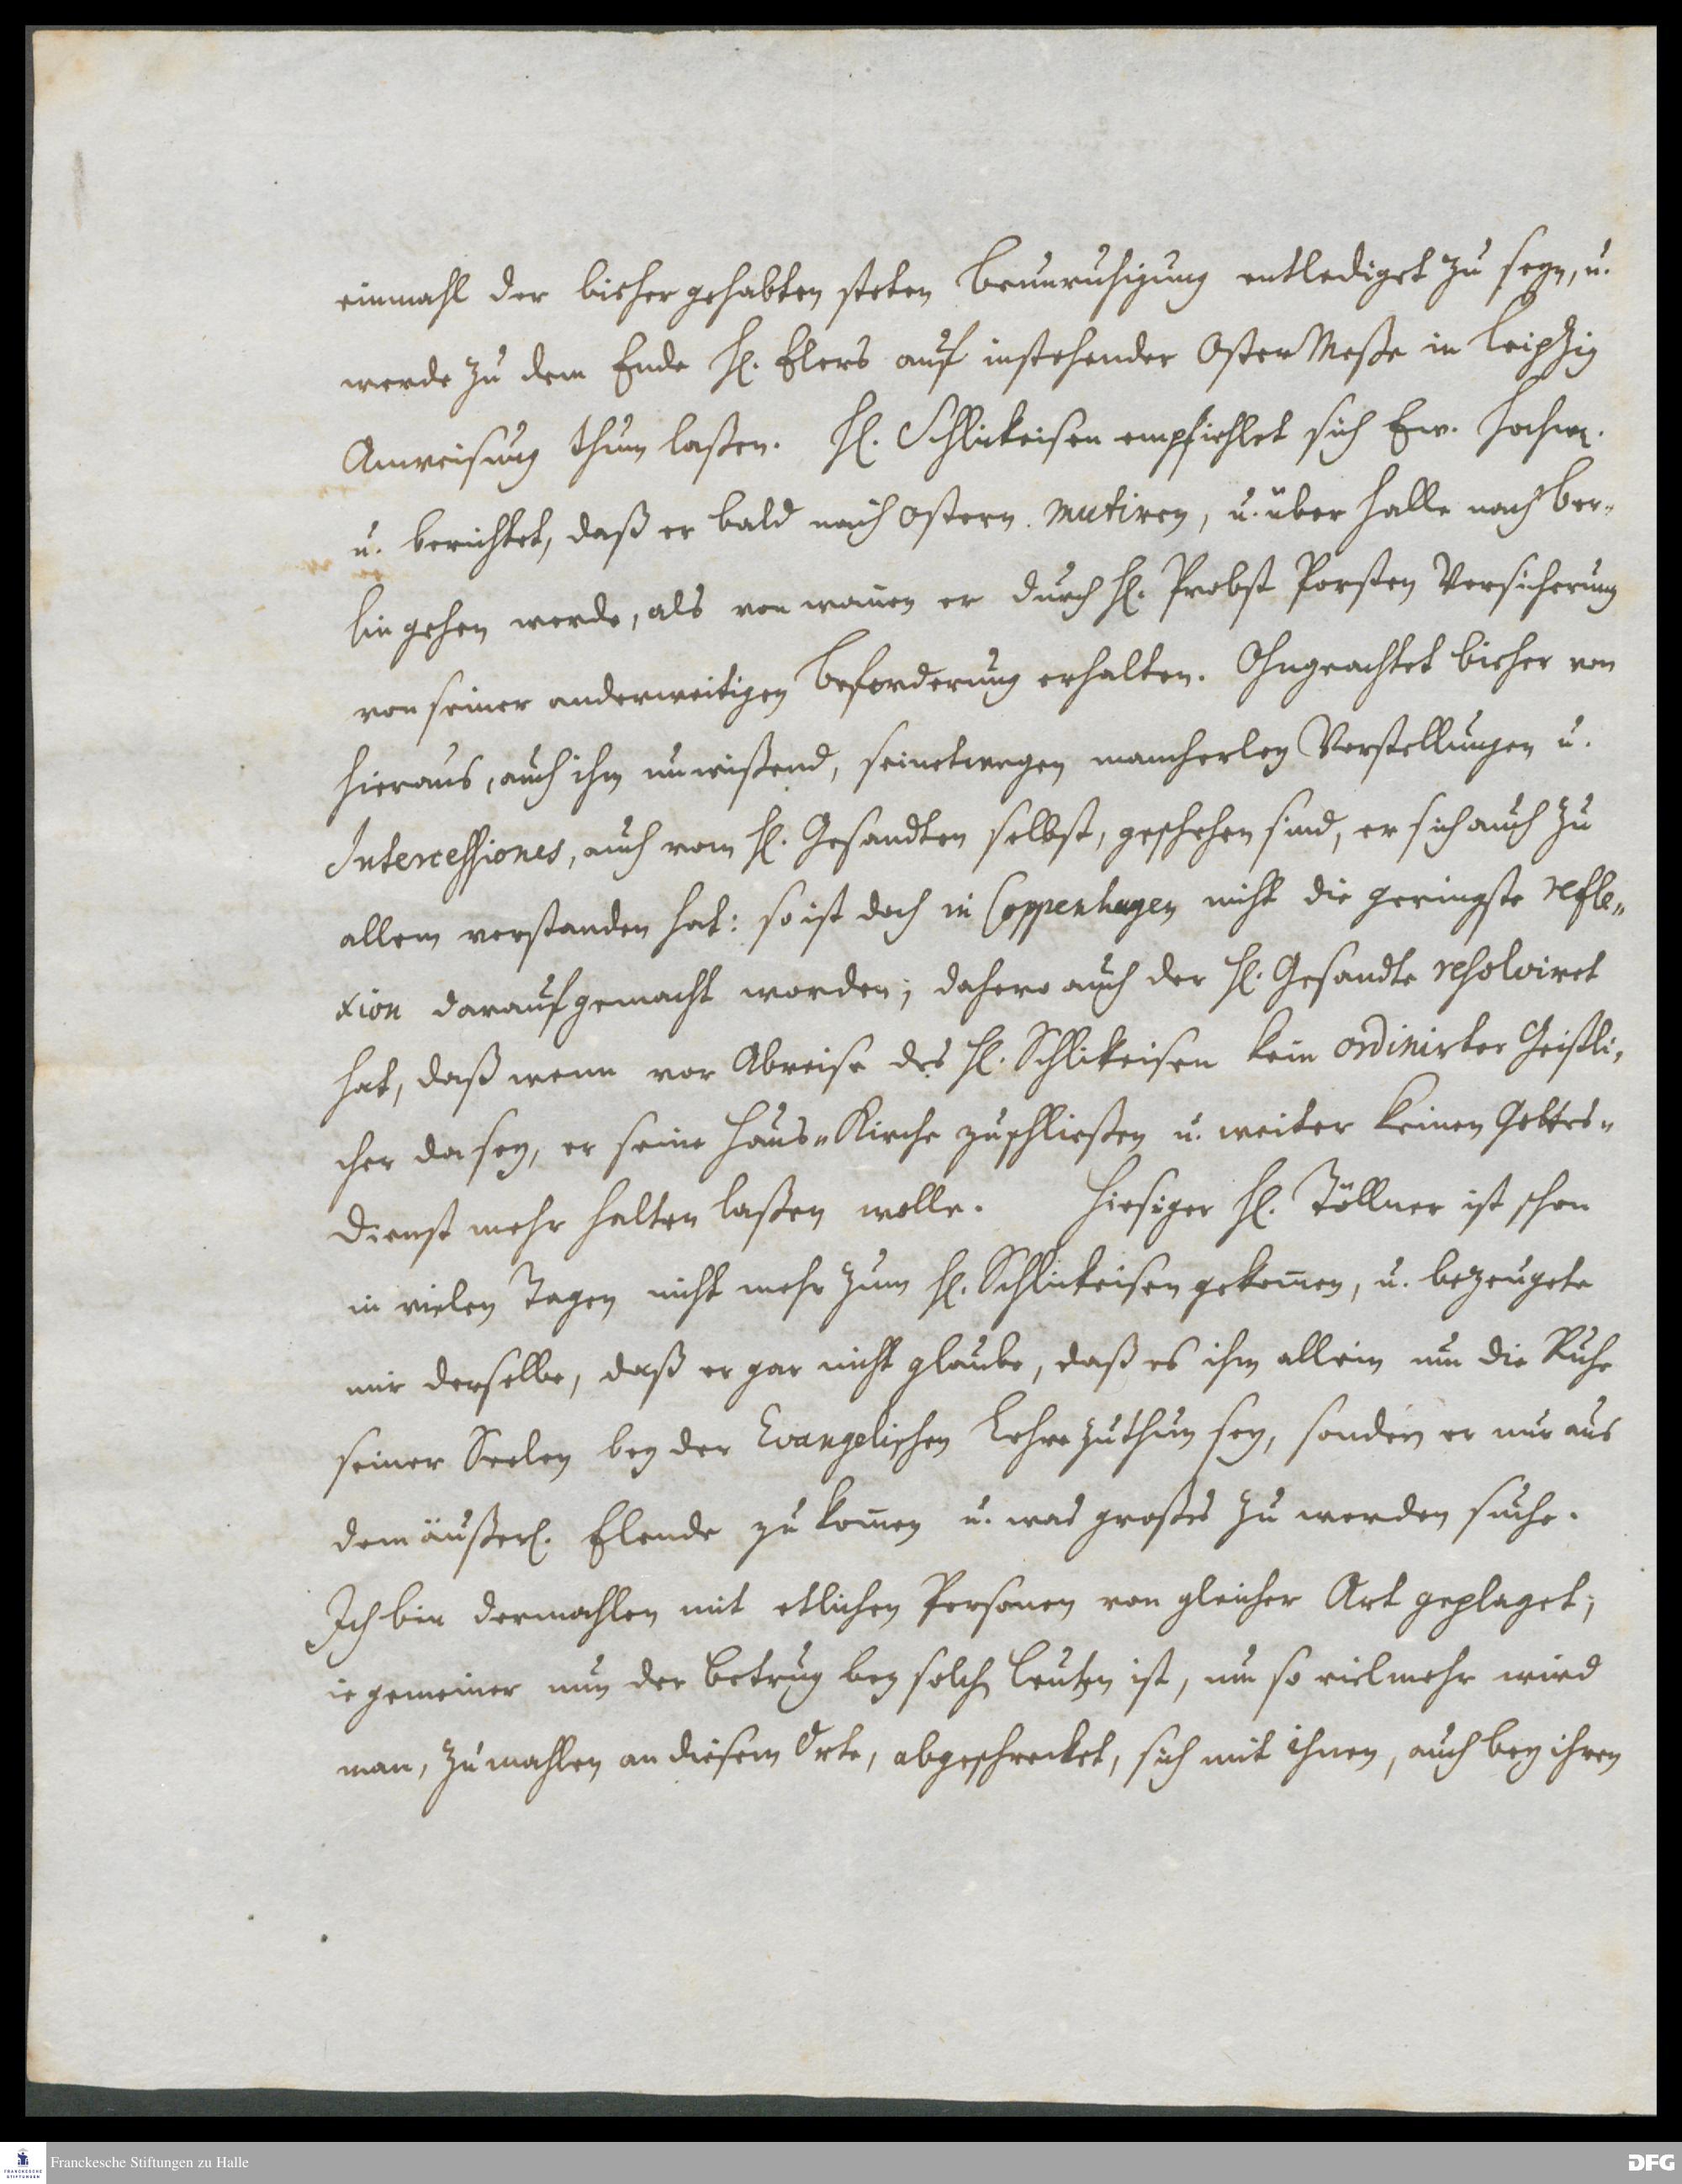 einmahl der bisher gehabten steten Beunruhigung entlediget zu seyn, u.
werde zu dem Ende H. Elers auf instehender Oster Meße in Leipzig
Anweisung thun laßen. H. Schlickeisen empfiehlet sich Ew. Hochw.
u. berichtet, daß er bald nach Ostern mutiren, u. über Halle nach Ber-
lin gehen werde, als von wannen er durch H. Probst Porsten Versicherung
von seiner anderweitigen Beforderung erhalten. Ohngeachtet bisher von
hieraus, auch ihm unwißend, seinetwegen mancherley Vorstellungen u.
Intercessiones, auch vom H. Gesandten selbst, geschehen sind, er sich auch zu
allem verstanden hat: so ist doch in Coppenhagen nicht die geringste refle-
xion darauf gemacht worden; dahero auch der H. Gesandte resolviret
hat, daß wenn vor Abreise des H. Schlickeisen kein ordinirter Geistli-
cher da sey, er seine Haus-Kirche zuschließen u. weiter keinen Gottes-
dienst mehr halten laßen wolle. Hiesiger H. Töllner ist schon
in vielen Tagen nicht mehr zum H. Schlickeisen gekommen, u. bezeugete
mir derselbe, daß er gar nicht glaube, daß es ihm allein um die Ruhe
seiner Seelen bey der Evangelischen Lehre zuthun sey, sondern er nur aus
dem äußerl. Elende zu kommen u. was großes zu werden suche.
Ich bin dermahlen mit etlichen Personen von gleicher Art geplaget;
ie gemeiner nun der Betrug bey solchen Leuten ist, um so vielmehr wird
man, zumahlen an diesem Orte, abgeschrecket, sich mit ihnen, auch bey ihren
Franckesche Stiftungen zu Halle
FRANCKESCHE STIFTUNGEN
DFG